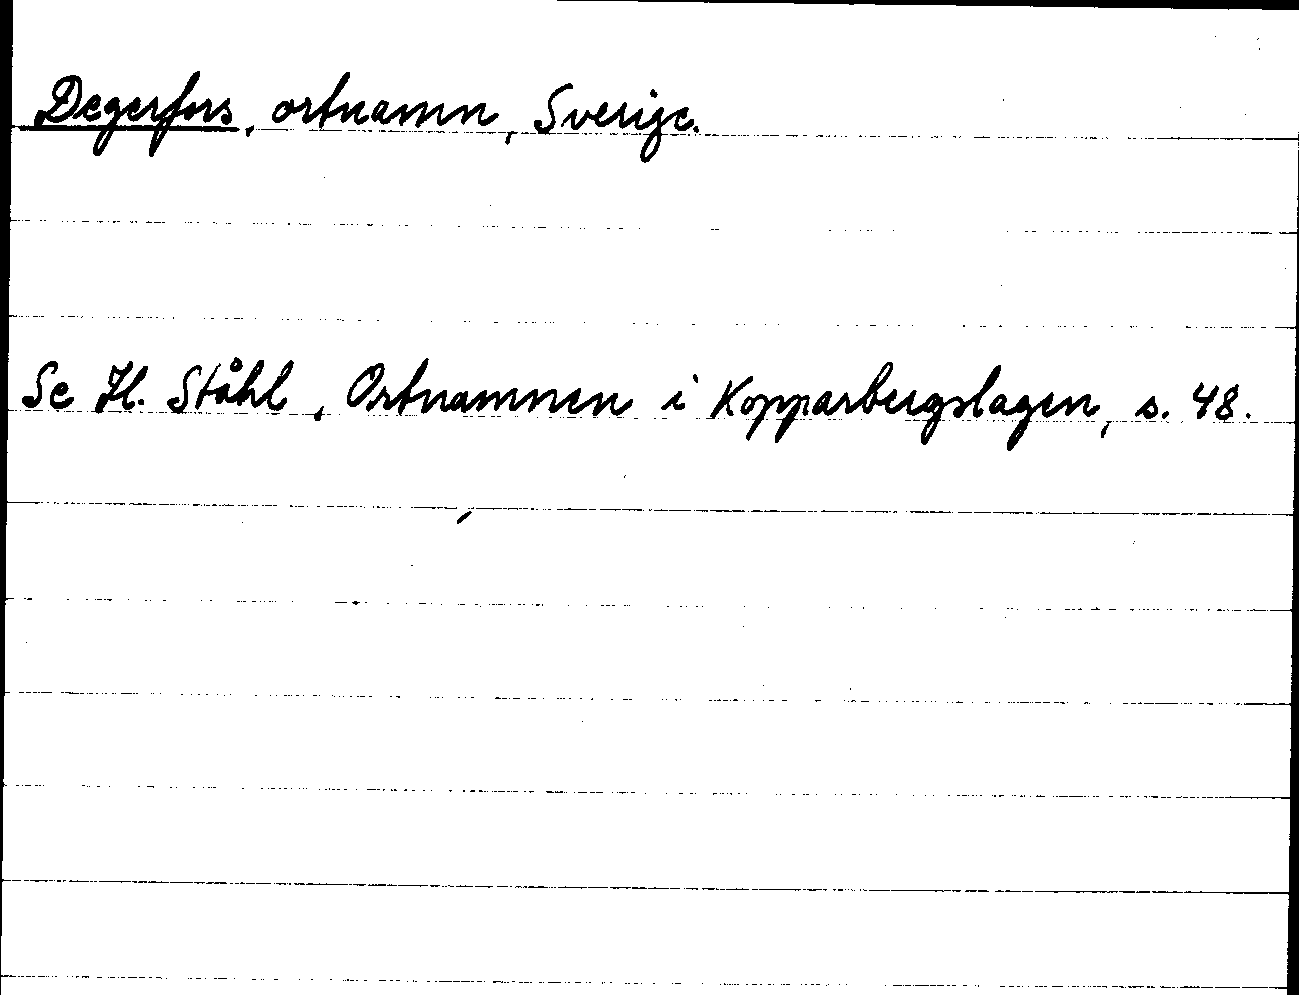 Degerfors, ortnamn, Sverige.
Se H. Ståhl, Ortnamnen i Kopparbergslagen, s. 48.